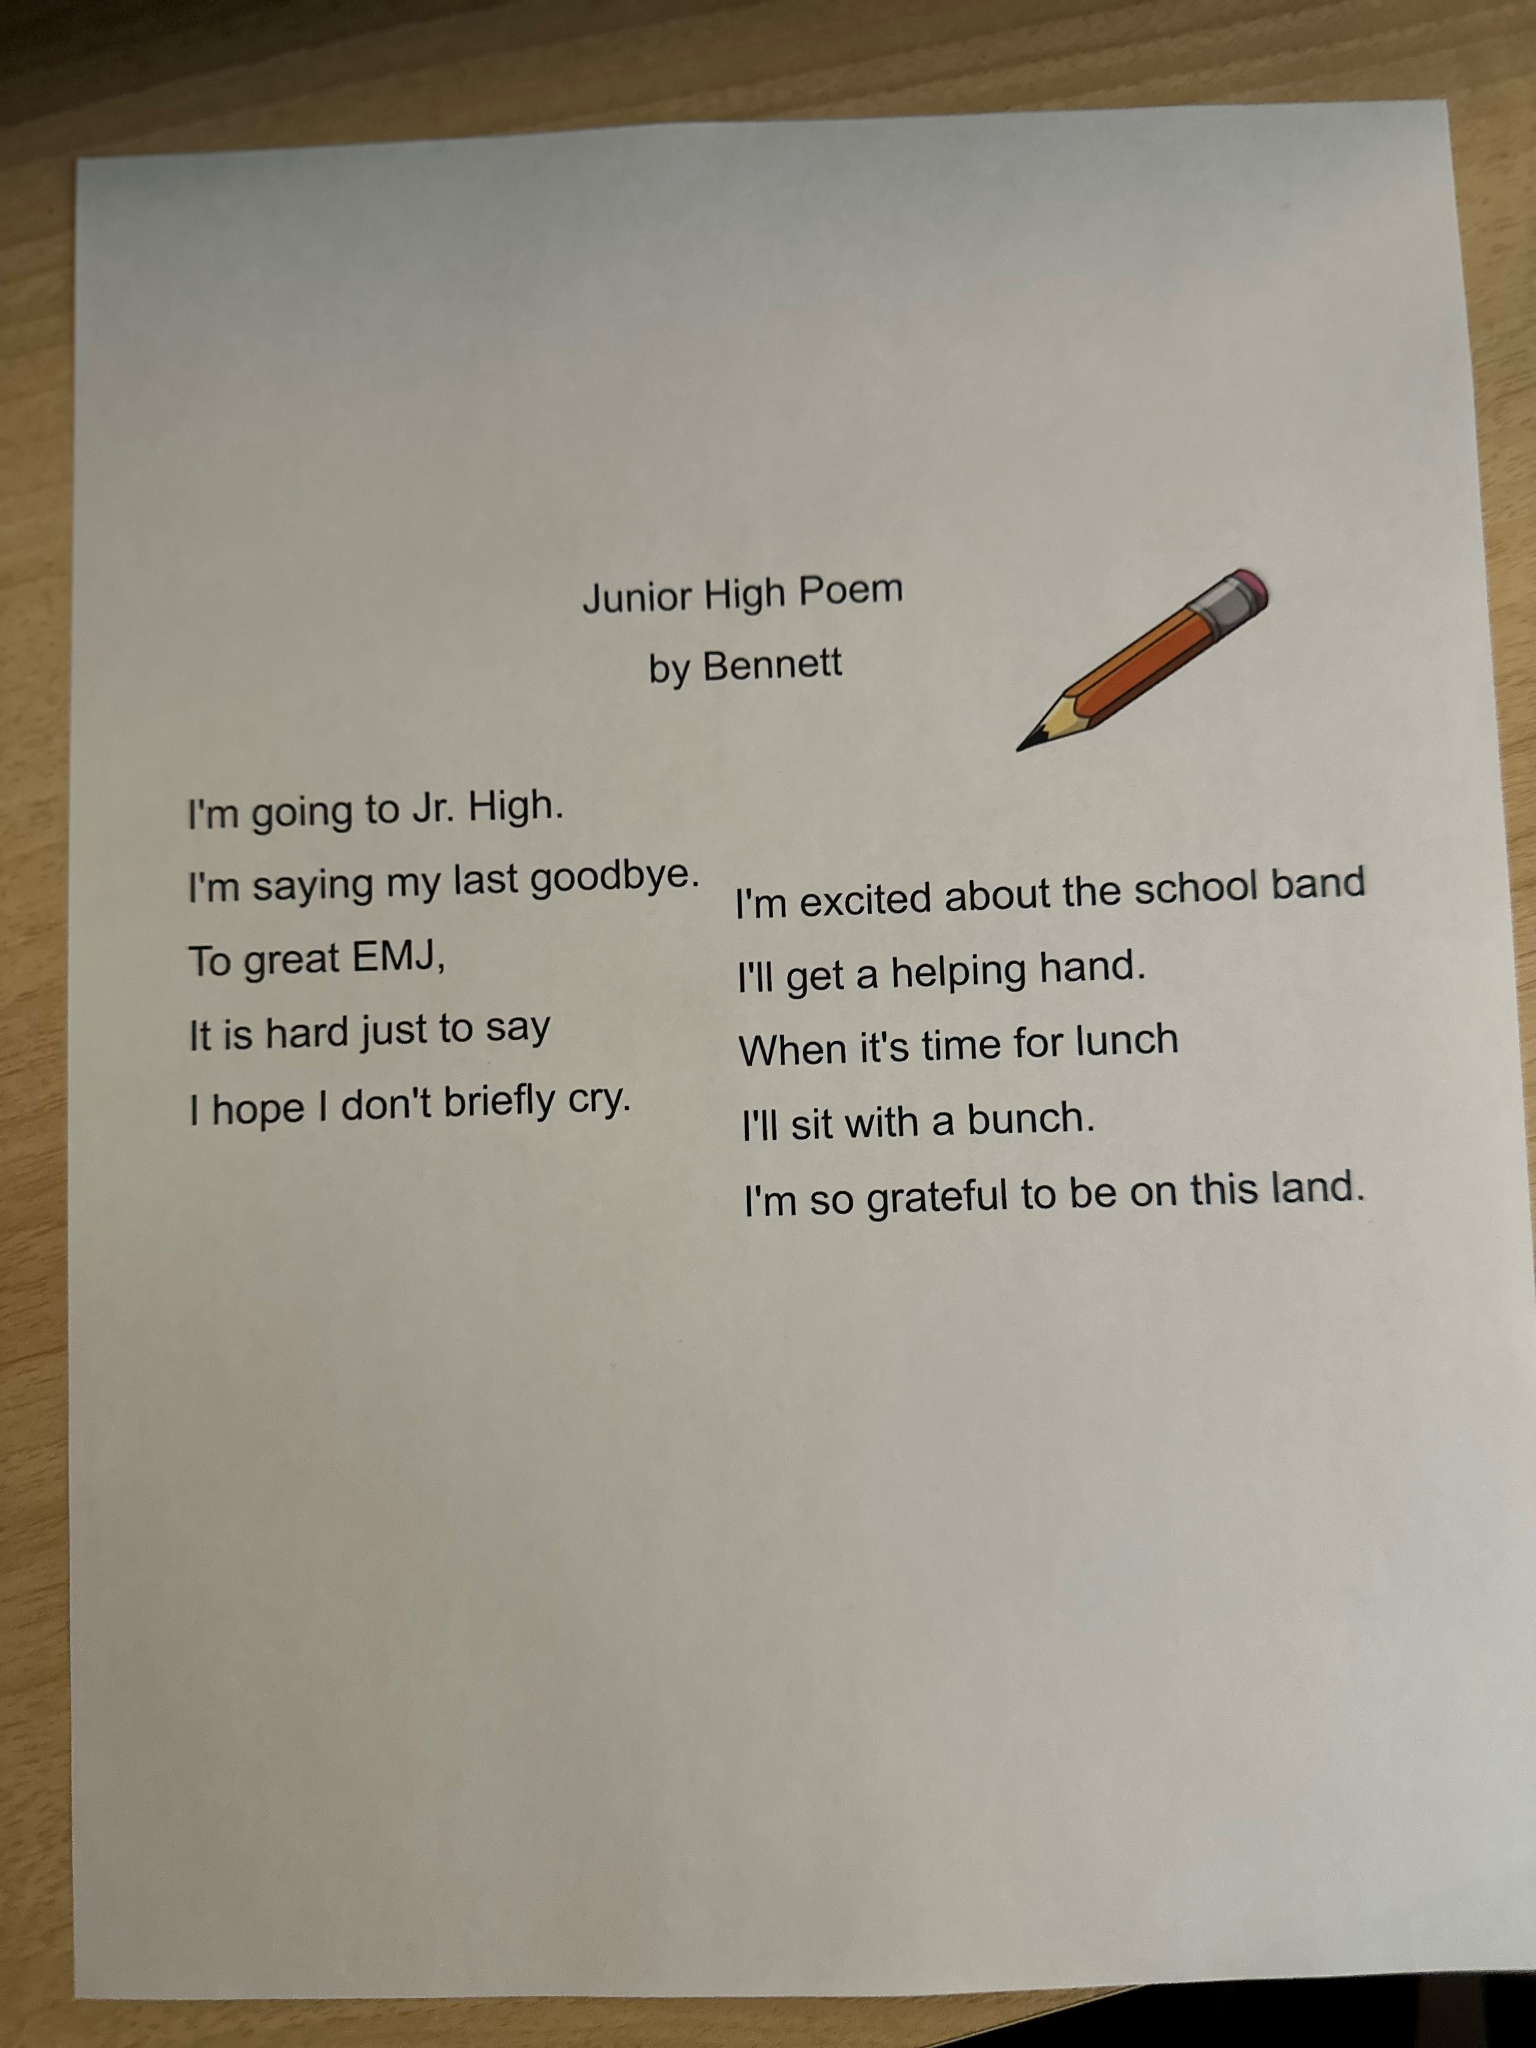 Junior High Poem
by Bennett
I'm going to Jr. High.
I'm saying my last goodbye.
To great EMJ,
It is hard just to say
I hope I don't briefly cry.
I'm excited about the school band
I'll get a helping hand.
When it's time for lunch
I'll sit with a bunch.
I'm so grateful to be on this land.